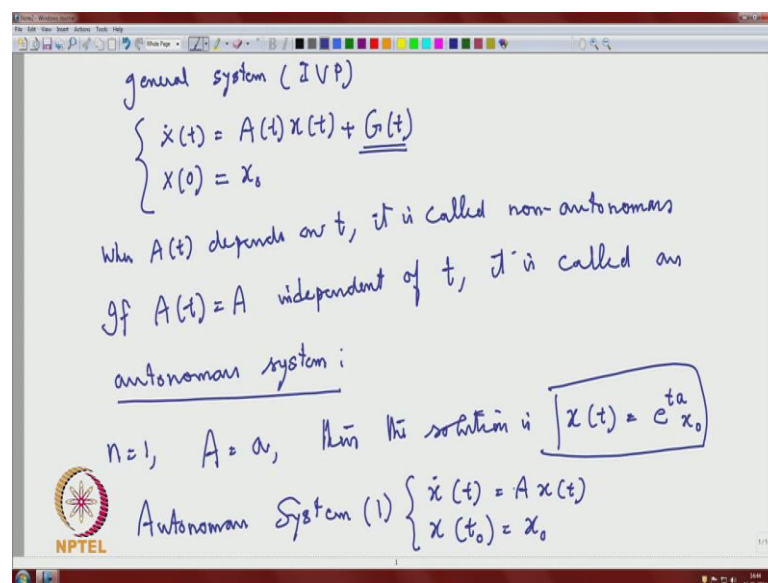 Note2 - Windows Journal
File Edit View Insert Actions Tools Help
Whole Page
general system (IVP)
ẋ(t) = A(t) x(t) + G(t)
x(0) = x₀
When A(t) depends on t, it is called non-autonomous
If A(t) = A independent of t, it is called an
autonomous system:
n=1, A = a, then the solution is x(t) = e^{ta} x₀
Autonomous System (1) { ẋ(t) = A x(t)
x(t₀) = x₀
NPTEL
1
1/1